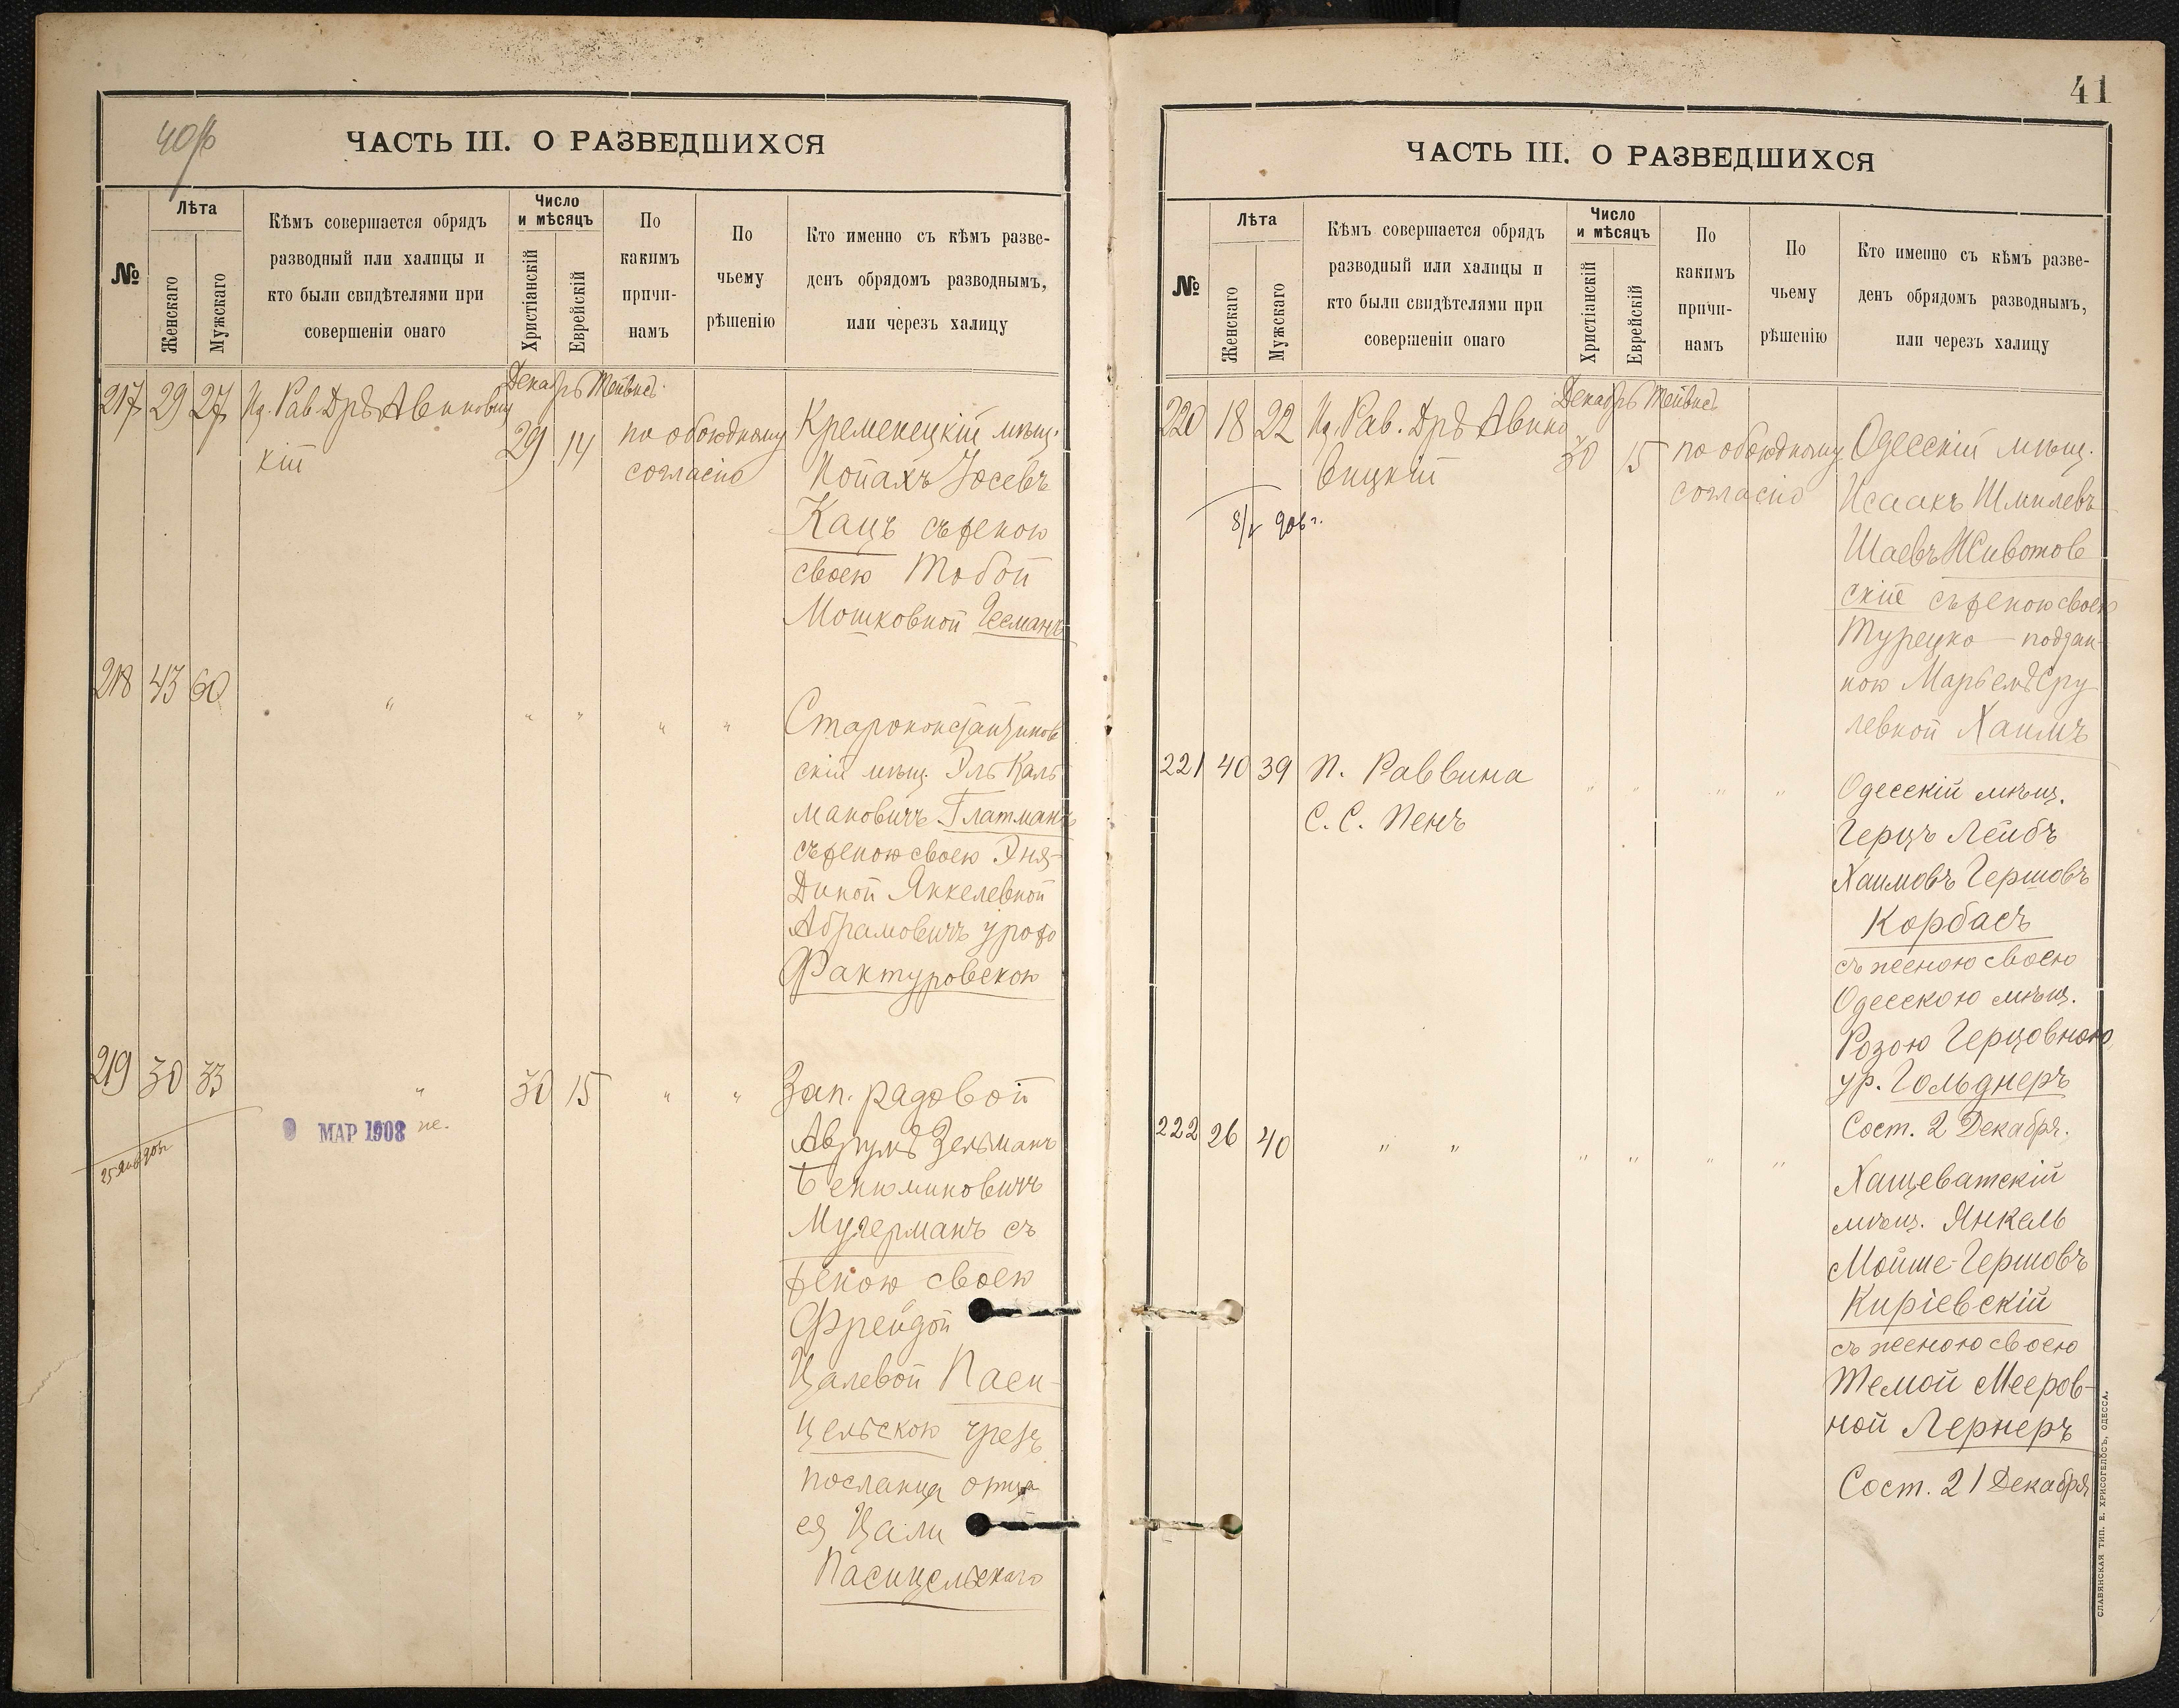 40/б
ЧАСТЬ III. О РАЗВЕДШИХСЯ
№
Лѣта
Женскаго
Мужскаго
Кѣмъ совершается обрядъ
разводный или халицы и
кто были свидѣтелями при
совершеніи онаго
Число
и мѣсяцъ
Христіанскій
Еврейскій
По
какимъ
причи-
намъ
По
чьему
рѣшенію
Кто именно съ кѣмъ разве-
денъ обрядомъ разводнымъ,
или черезъ халицу
Декабрь Тейвисъ
217 29 27 Ид. Рав. Дръ Авинович
кій
29 14 по обоюдному
согласію
Кременецкій мѣщ.
Копахъ Іосевъ
Кацъ съ женою
своею Тобой
Мошковной Гесманъ
218 43 60 " " " " "
Староконстантинов
скій мѣщ. Эль Каль
мановичъ Глатманъ
съ женою своею Эня-
Диной Янкелевной
Абрамовичъ урожд
Фактуровскою
219 30 33 " 30 15 " "
Зап. рядовой
Аврумъ Зельманъ
Бенюминовичъ
Мучерманъ съ
женою своею
Фрейдой
Цалевой Паси-
цельскою чрезъ
посланца отца
ея Цали
Пасицельскаго
9 МАР 1908
25 Янв 906
41
ЧАСТЬ III. О РАЗВЕДШИХСЯ
№
Лѣта
Женскаго
Мужскаго
Кѣмъ совершается обрядъ
разводный или халицы и
кто были свидѣтелями при
совершеніи онаго
Число
и мѣсяцъ
Христіанскій
Еврейскій
По
какимъ
причи-
намъ
По
чьему
рѣшенію
Кто именно съ кѣмъ разве-
денъ обрядомъ разводнымъ,
или черезъ халицу
Декабрь Тейвисъ
220 18 22 Ид. Рав. Дръ Авино
вицкій
30 15 по обоюдному
согласію
8/V 906 г.
Одесскій мѣщ.
Исаакъ Шмилевъ
Шаевъ Животов
скій съ женою своею
Турецко-поддан-
ною Марьем Сру
левной Хаимъ
221 40 39 П. Раввина
С. С. Пенъ
" " " "
Одесскій мѣщ.
Герцъ Лейбъ
Хаимовъ Гершовъ
Корбасъ
съ женою своею
Одесскою мѣщ.
Розою Герцовною
ур. Гольднеръ
Сост. 2 Декабря.
222 26 40 " " " " " "
Хащеватскій
мѣщ. Янкель
Мойше-Гершовъ
Киріевскій
съ женою своею
Темой Мееров-
ной Лернеръ
Сост. 21 Декабря
СЛАВЯНСКАЯ ТИП. Е. ХРИСОГЕЛОСЪ, ОДЕССА.